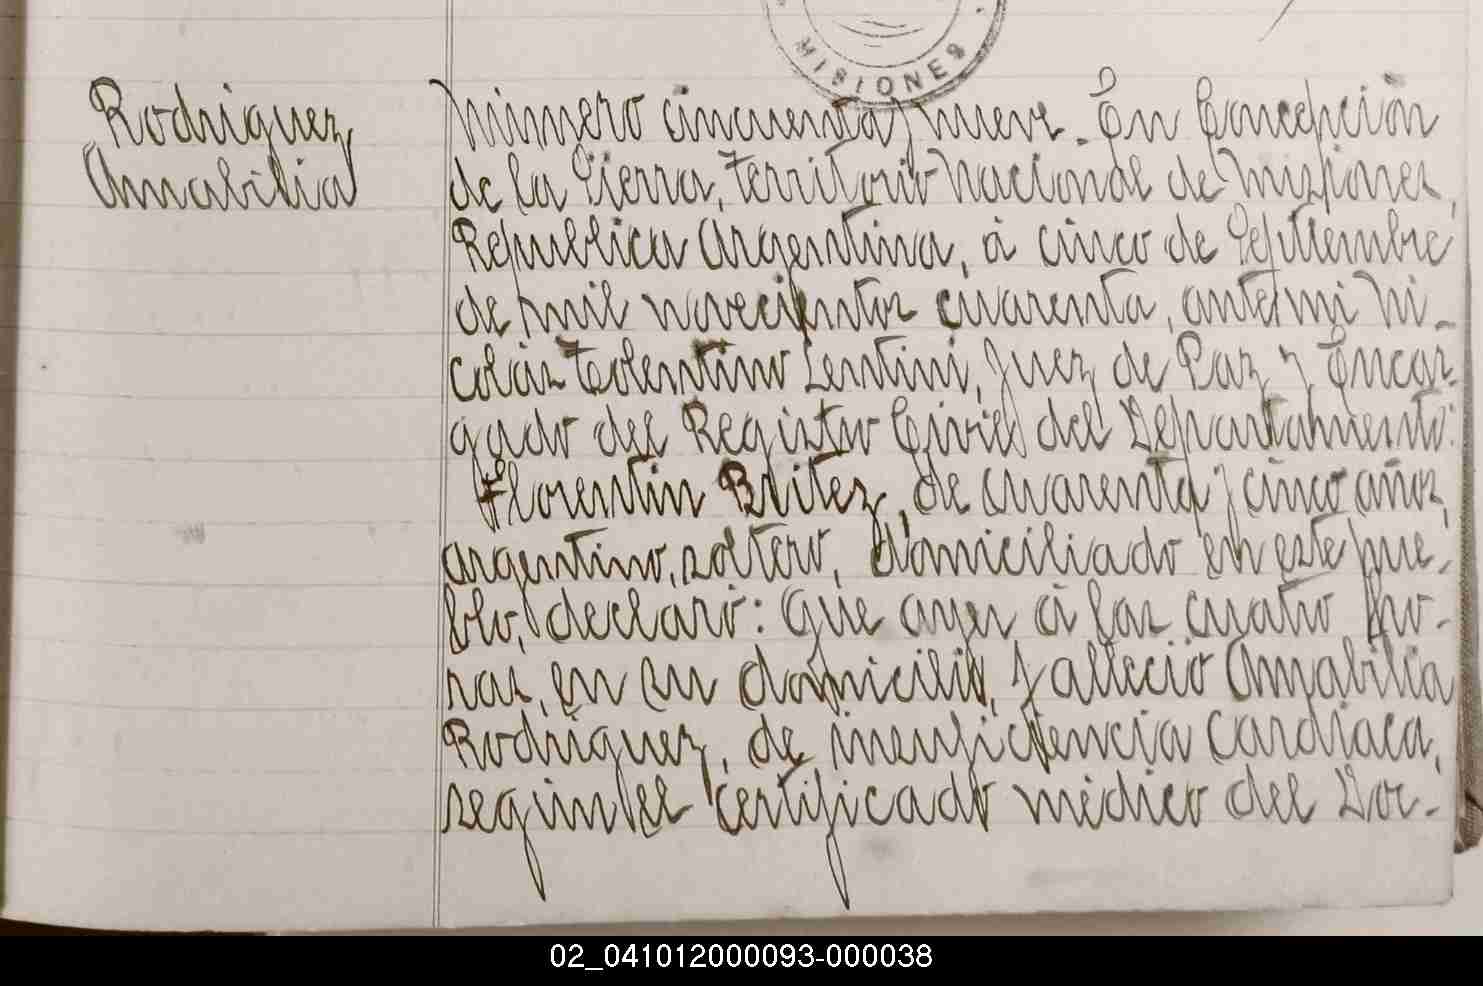 MISIONES
Rodriguez
Amabilia
Número cincuenta y nueve. En Concepción
de la Sierra, territorio Nacional de Misiones,
Republica Argentina, á cinco de Septiembre
de mil novecientos cuarenta, ante mi Ni-
colás Tolentino Lentini, Juez de Paz y Encar-
gado del Registro Civil del Departamento:
Florentin Britez, de cuarenta y cinco años,
argentino, soltero, domiciliado en este pue-
blo, declaró: Que ayer á las cuatro ho-
ras, en su domicilio, falleció Amabilia
Rodriguez, de insuficiencia cardiaca,
según el certificado médico del Doc-
02_041012000093-000038